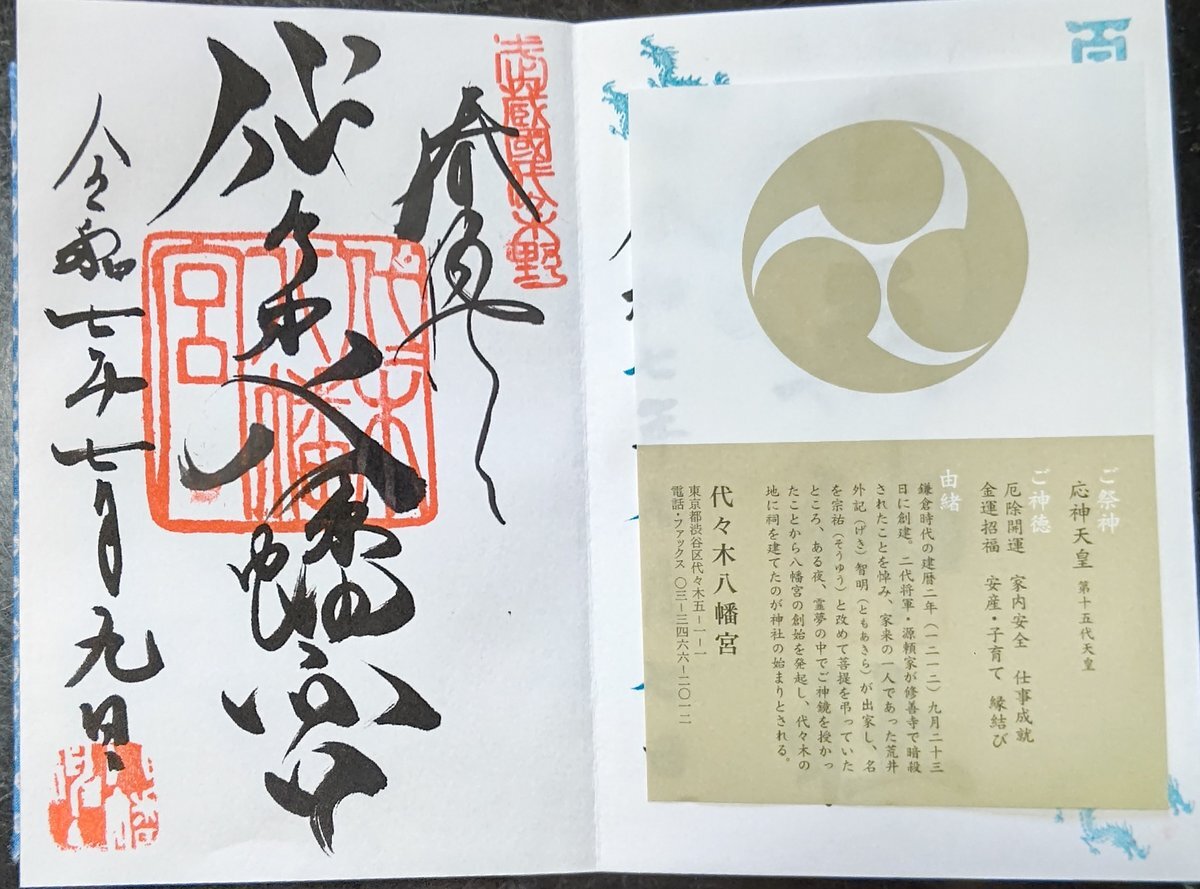 ご祭神
応神天皇 第十五代天皇
ご神徳
厄除開運 家内安全 仕事成就
金運招福 安産・子育て 縁結び
由緒
鎌倉時代の建暦二年(一二一二)九月二十三
日に創建。二代将軍・源頼家が修善寺で暗殺
されたことを悼み、家来の一人であった荒井
外記(げき)智明(ともあきら)が出家し、名
を宗祐(そうゆう)と改めて菩提を弔っていた
ところ、ある夜、霊夢の中でご神鏡を授かっ
たことから八幡宮の創始を発起し、代々木の
地に祠を建てたのが神社の始まりとされる。
代々木八幡宮
東京都渋谷区代々木五ー一ー一
電話・ファックス 〇三ー三四六六ー二〇一二
武蔵國代々木野
代々木八幡宮
代々木
八幡
宮
令和七年七月九日